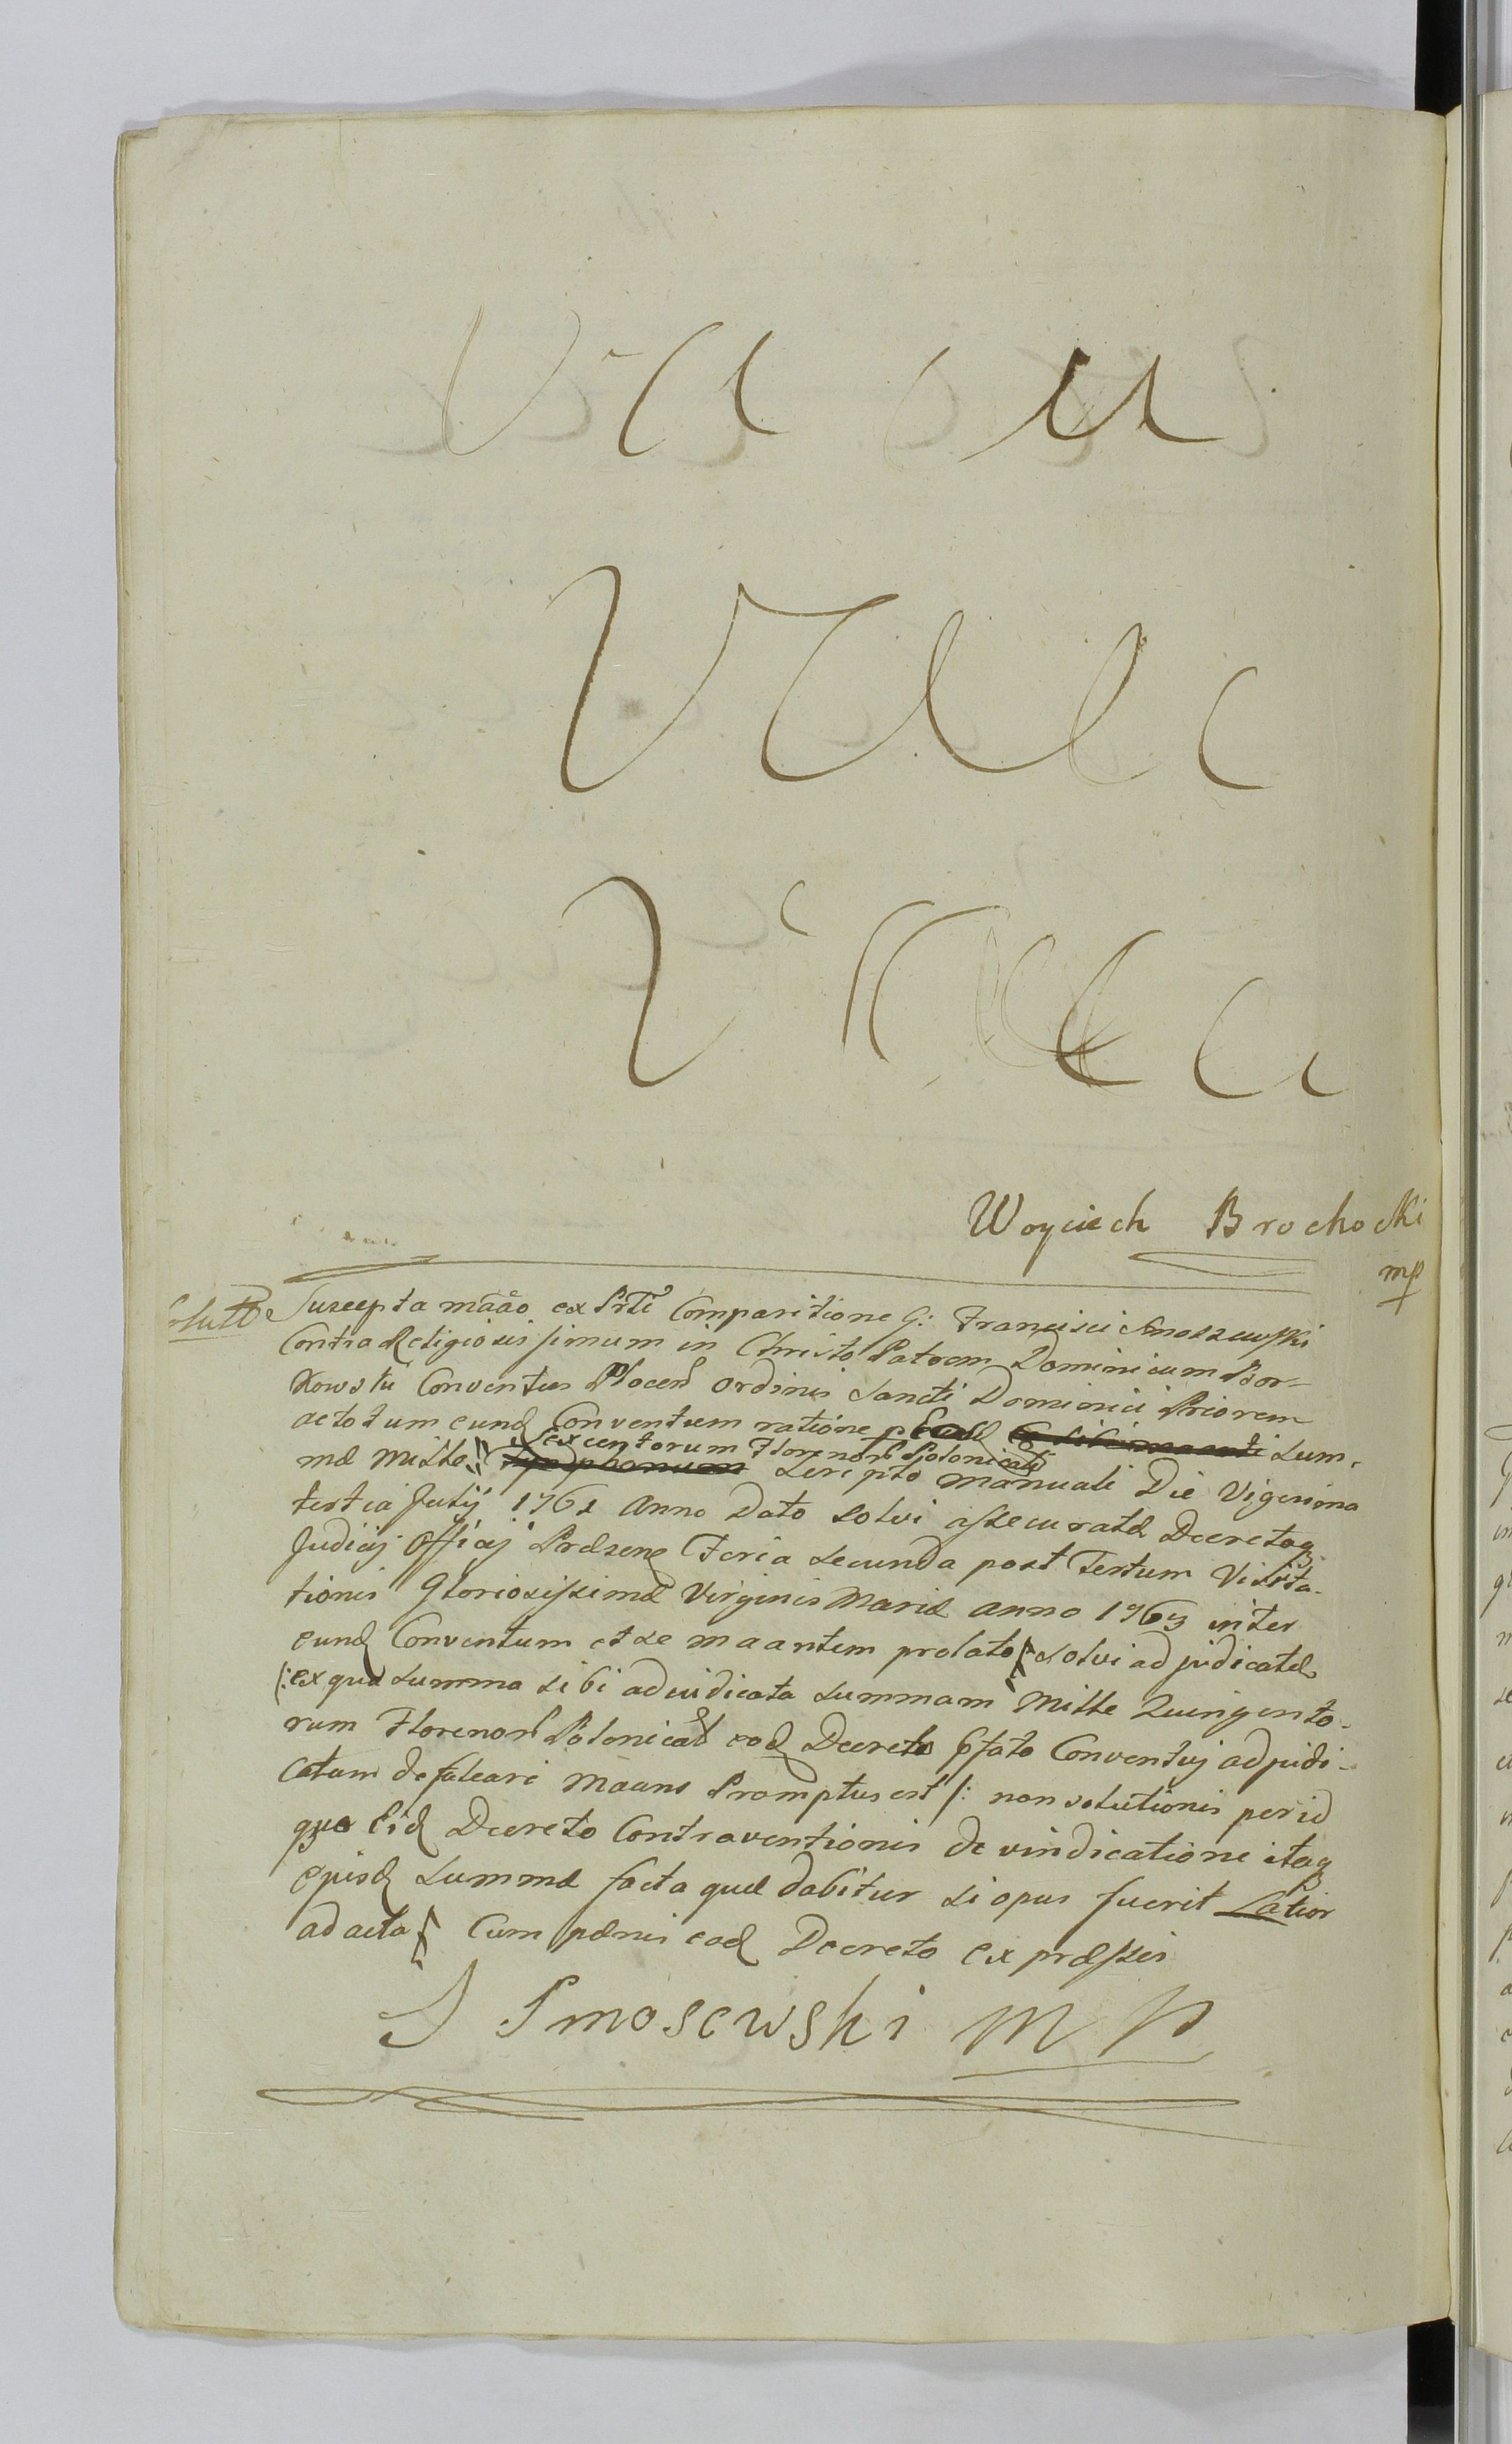 Woyciech Brochocki
mp
Suscepta maão ex Prti Comparitione G: Francisci
Contra Religiosissimum in Christo Patrem Dominicum Bor-
kowski Conventus Plocen Ordinis Sancti Dominici Priorem
ac totum eund Conventum ratione Sum,
Sexcentorum Florenor Polonical
mæ Mille Scripto manuali Die Vigesima
tertia Julij 1761 Anno Dato Solvi assecuratæ Decretoq
Judicij Officij Præsene Feria Secunda post Festum Visita-
tionis Gloriosissimæ Virginis Mariæ anno 1763 inter
eund Conventum et se maantem prolato solvi adjudicatæ
/:ex qua summa sibi adiudicata summam Mille Quingento-
rum Florenor Polonical eod Decreto Conventuj adjudi-
catam defalcari Maans Promptus est /: non solutionis per id
quo Eid Decreto Contraventionis de vindicatione itaq
ejusd Summæ facta quæ dabitur si opus fuerit Latior
ad acta Cum pænis eod Decreto expræssis
J Smosewski mp